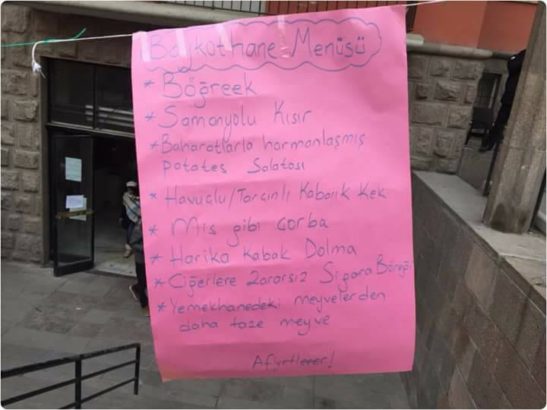 Boykothane Menüsü
* Böğreek
* Samanyolu Kısır
* Baharatlarla harmanlaşmış
patates Salatası
* Havuçlu/Tarçınlı Kabarık Kek
* Mis gibi çorba
* Harika Kabak Dolma
* Ciğerlere Zararsız Sigara Böreği
* Yemekhanedeki meyvelerden
daha taze meyve